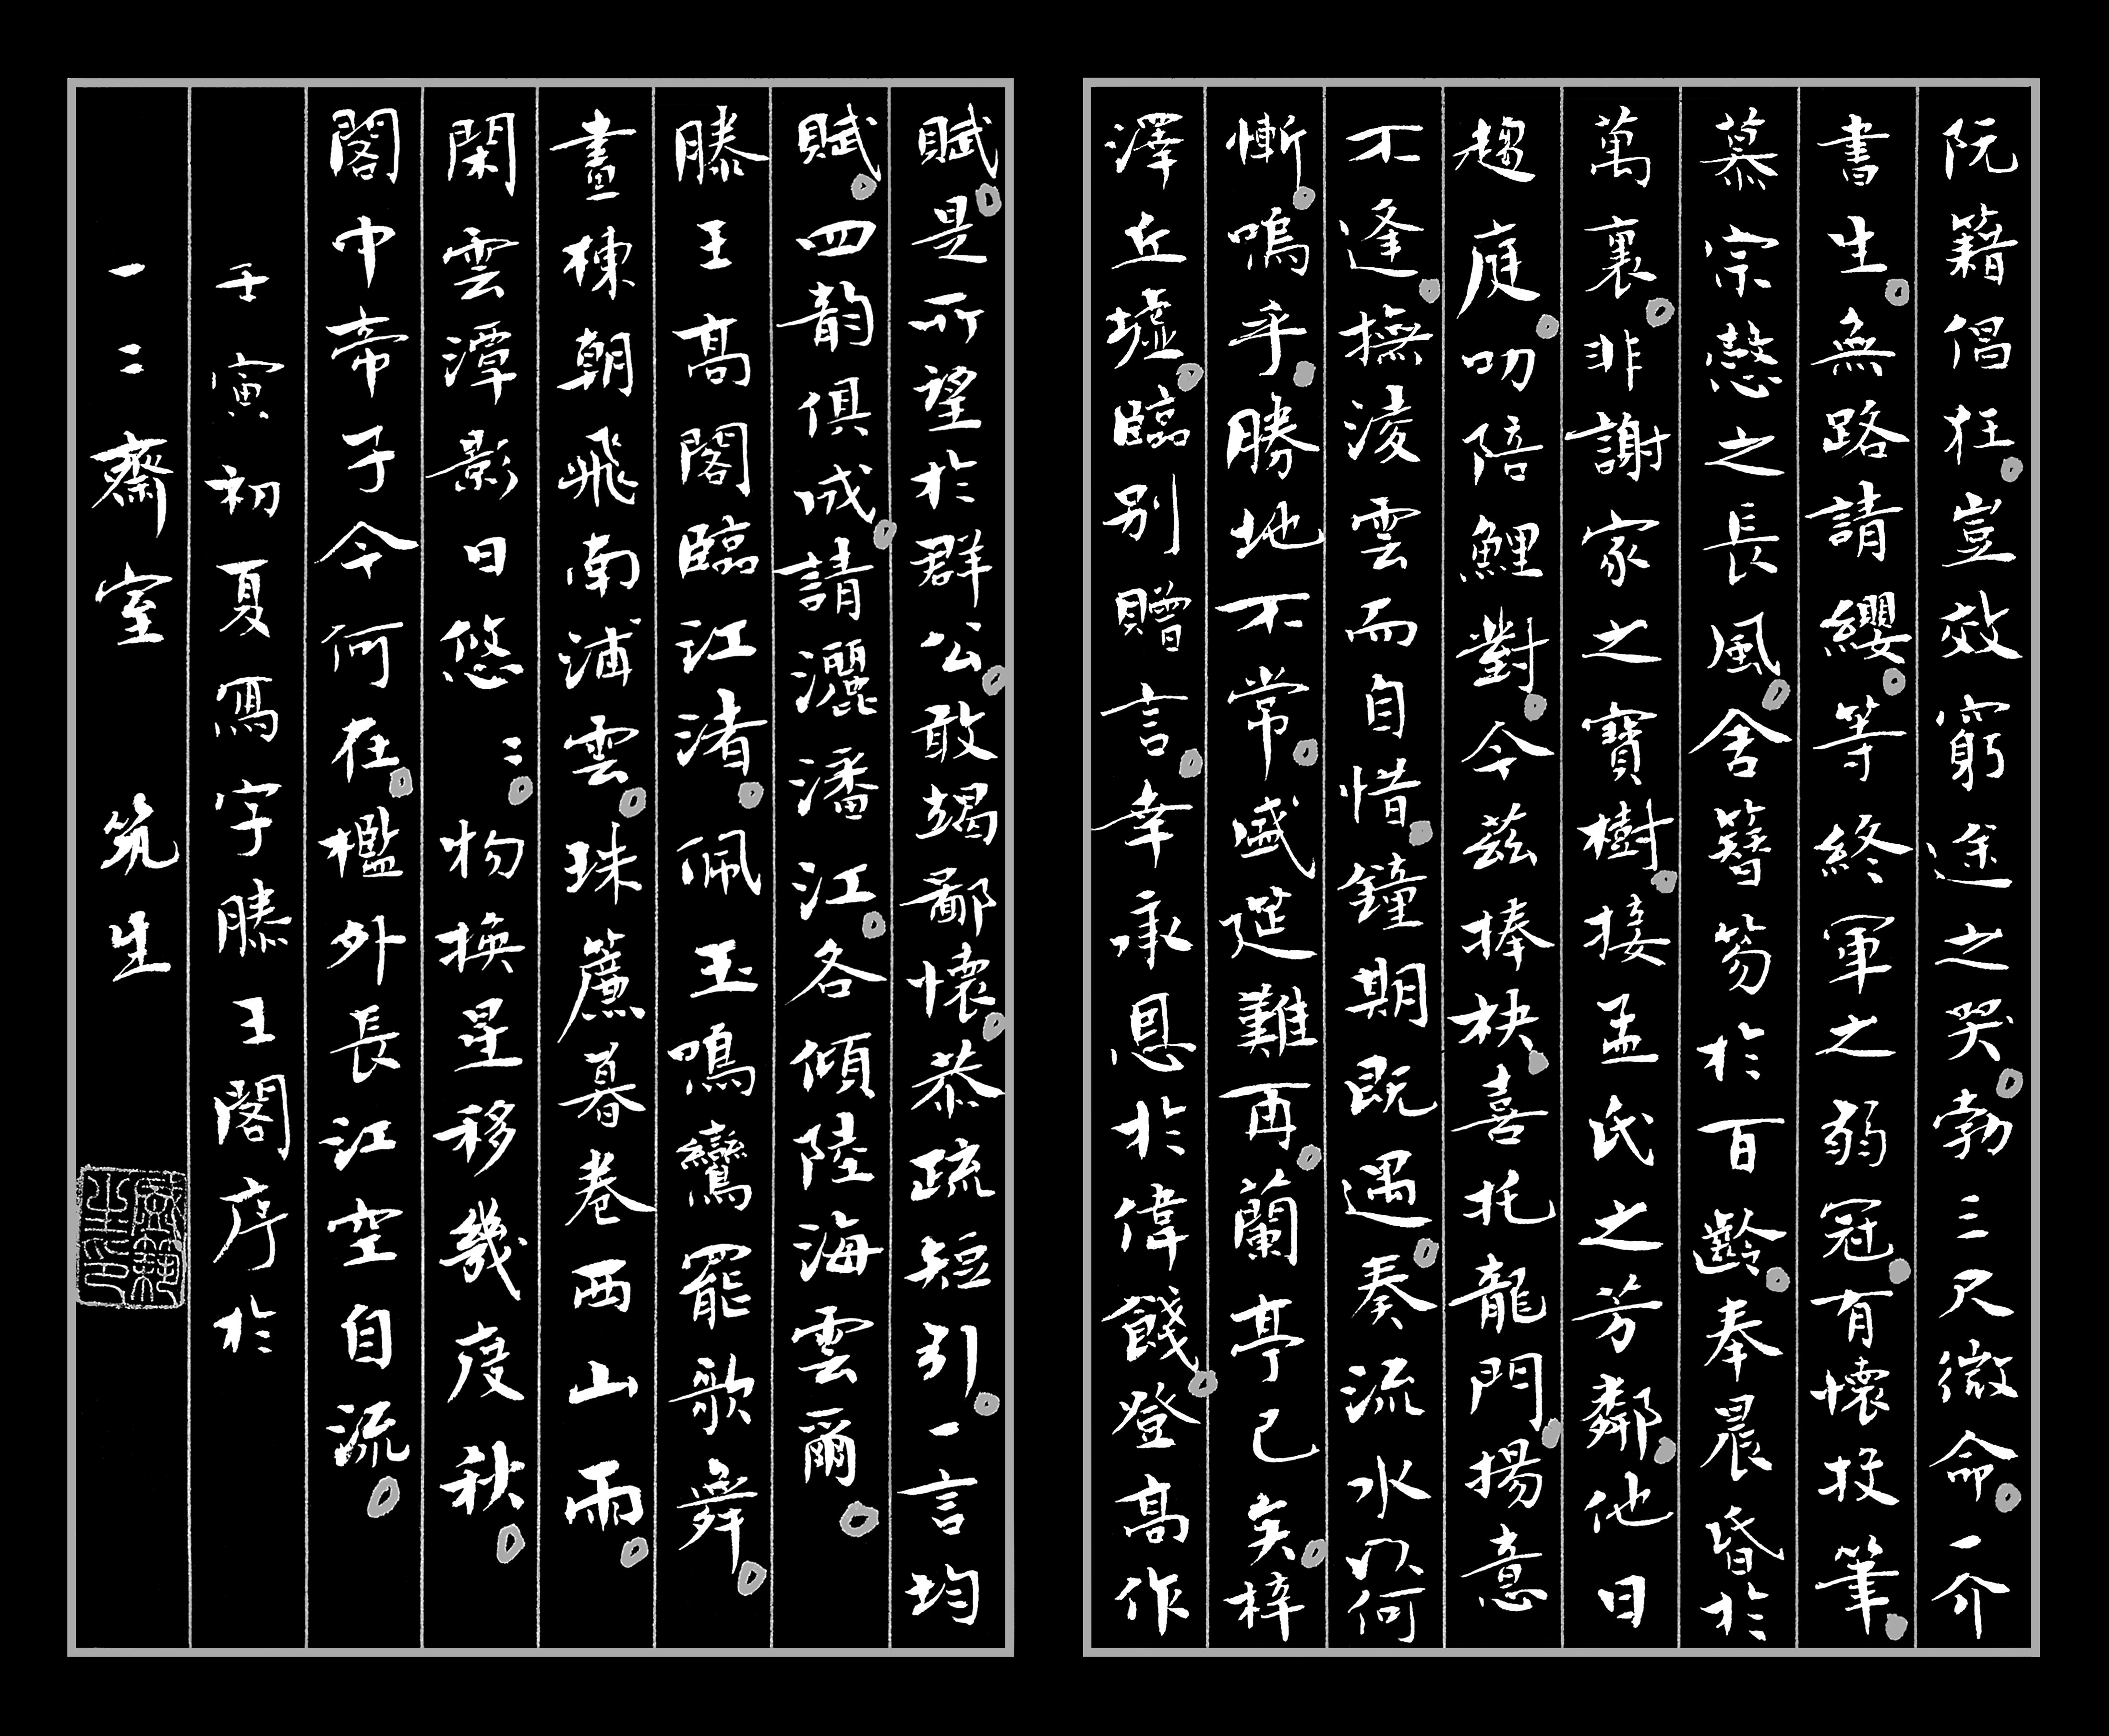 阮籍倡狂。豈效窮途之哭。勃三尺微命。一介
書生。無路請纓。等終軍之弱冠。有懷投筆。
慕宗愨之長風。舍簪笏於百齡。奉晨昏於
萬裏。非謝家之寶樹。接孟氏之芳鄰。他日
趨庭。叨陪鯉對。今茲捧袂。喜托龍門。楊意
不逢。撫凌雲而自惜。鐘期既遇。奏流水以何
慚。嗚乎。勝地不常。盛筵難再。蘭亭已矣。梓
澤丘墟。臨別贈言。幸承恩於偉餞。登高作
賦。是所望於群公。敢竭鄙懷。恭疏短引。一言均
賦。四韵俱成。請灑潘江。各傾陸海雲爾。
滕王高閣臨江渚。佩玉鳴鸞罷歌舞。
畫棟朝飛南浦雲。珠簾暮卷西山雨。
閑雲潭影日悠〻。物換星移幾度秋。
閣中帝子今何在。檻外長江空自流。
壬寅初夏寫字滕王閣序於
一三齋室 筑生